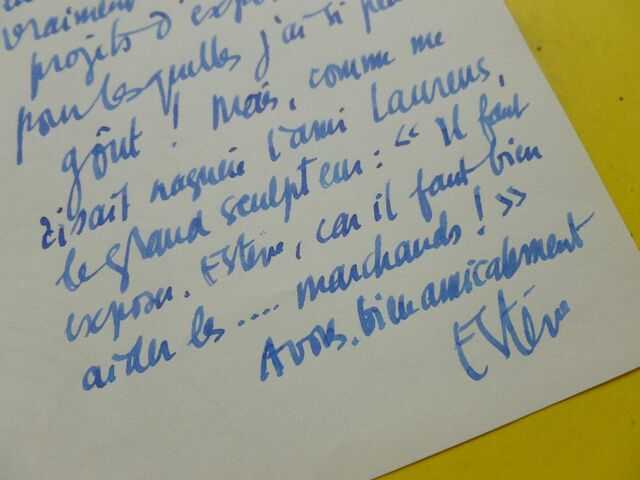 vraiment
projets d'expos
pour lesquelles j'ai si peu
goût ! Mais, comme me
disait naguère l'ami Laurens,
le grand sculpteur : « Il faut
exposer. Estève, car il faut bien
aider les .... marchands ! »
A vous. bien amicalement
Estève